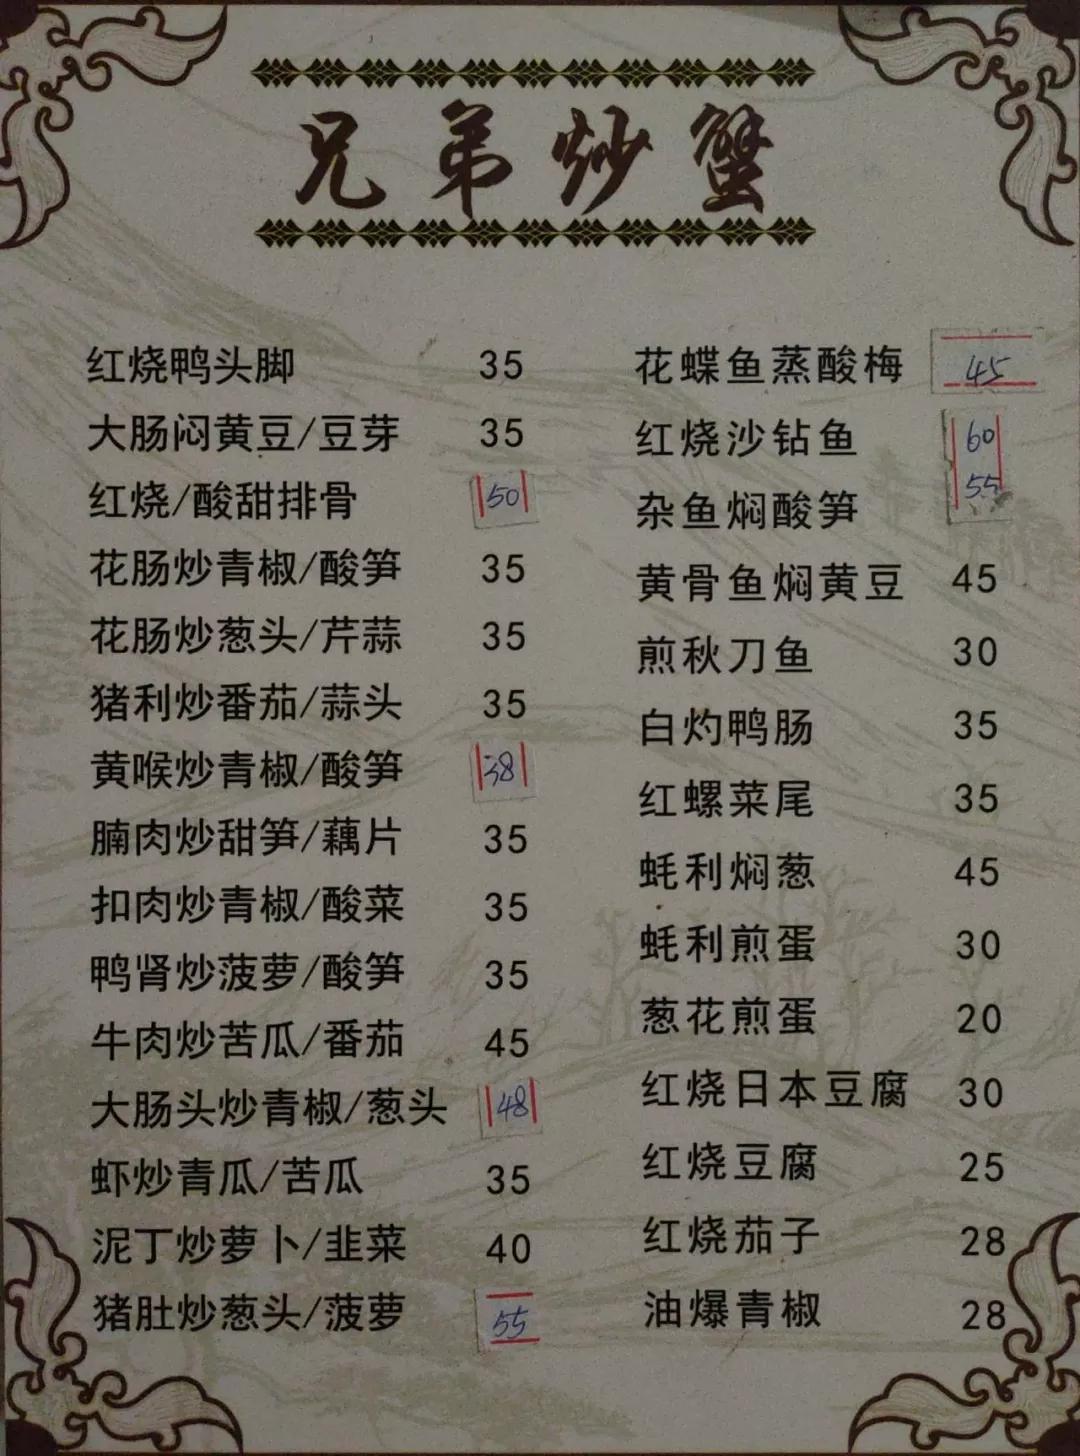 兄弟炒蟹
红烧鸭头脚 35
大肠闷黄豆/豆芽 35
红烧/酸甜排骨 50
花肠炒青椒/酸笋 35
花肠炒葱头/芹蒜 35
猪利炒番茄/蒜头 35
黄喉炒青椒/酸笋 38
腩肉炒甜笋/藕片 35
扣肉炒青椒/酸菜 35
鸭肾炒菠萝/酸笋 35
牛肉炒苦瓜/番茄 45
大肠头炒青椒/葱头 48
虾炒青瓜/苦瓜 35
泥丁炒萝卜/韭菜 40
猪肚炒葱头/菠萝 55
花蝶鱼蒸酸梅 45
红烧沙钻鱼 60
杂鱼焖酸笋 55
黄骨鱼焖黄豆 45
煎秋刀鱼 30
白灼鸭肠 35
红螺菜尾 35
蚝利焖葱 45
蚝利煎蛋 30
葱花煎蛋 20
红烧日本豆腐 30
红烧豆腐 25
红烧茄子 28
油爆青椒 28